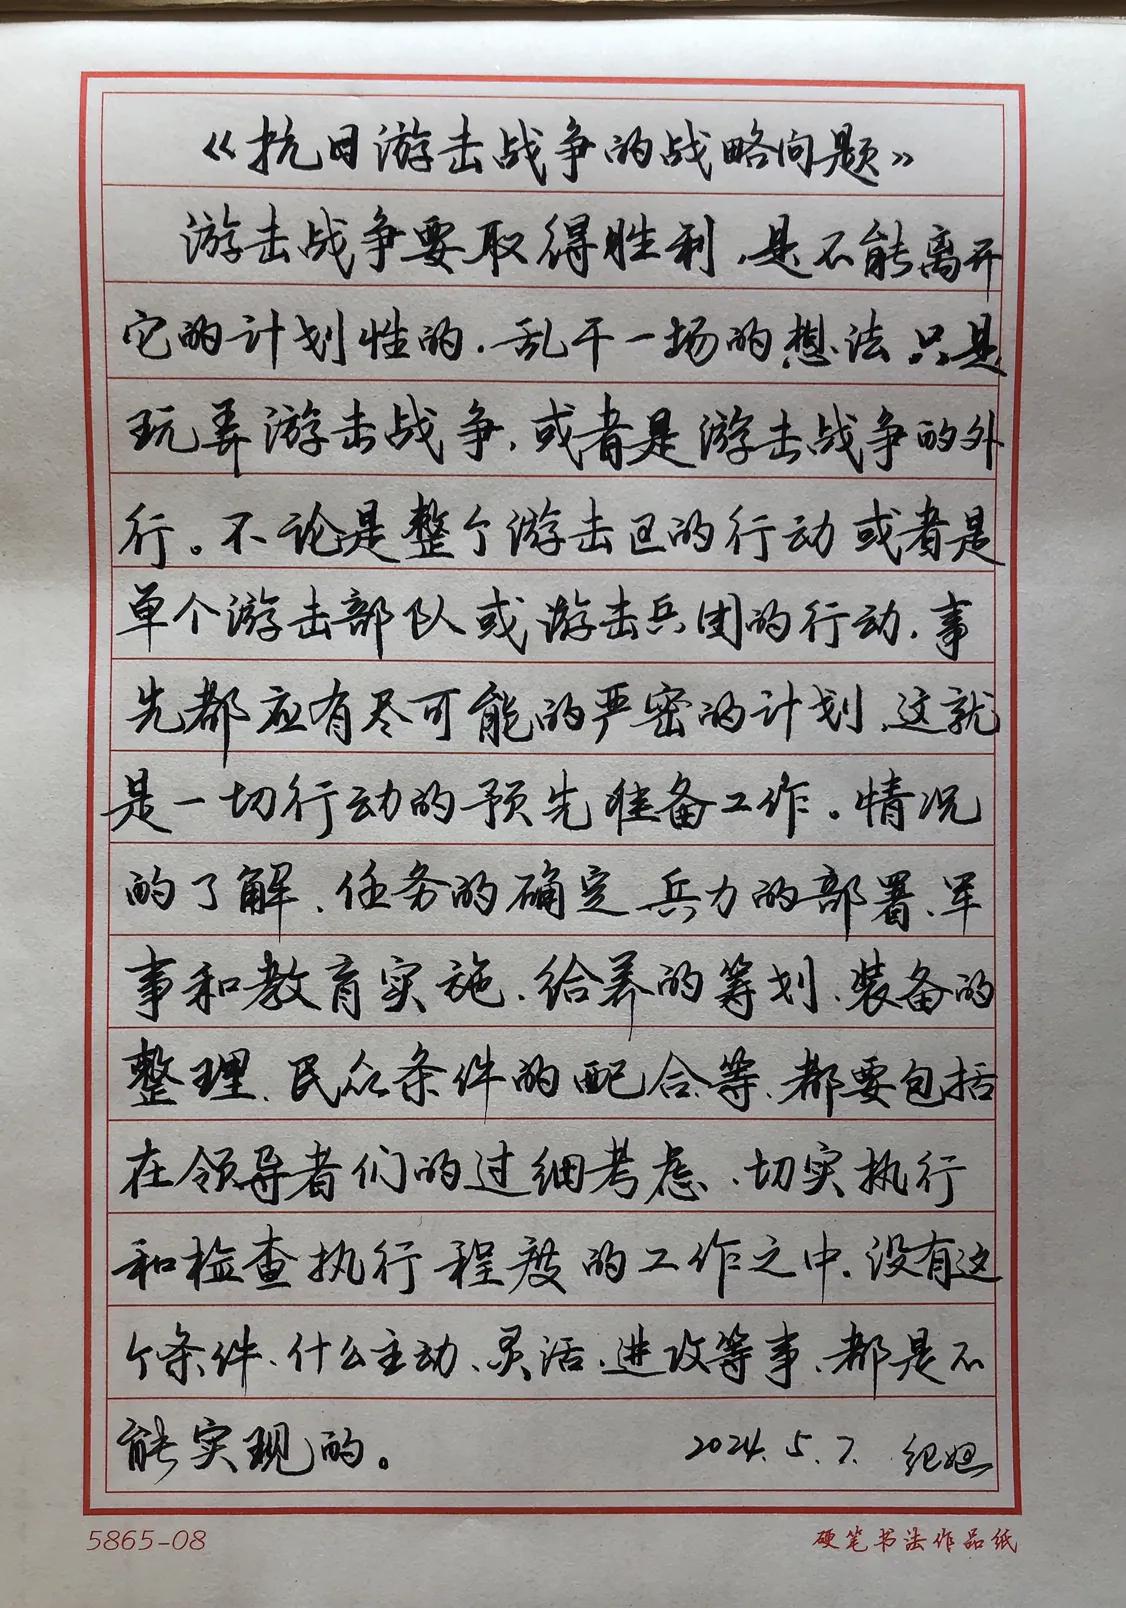 《抗日游击战争的战略问题》
游击战争要取得胜利，是不能离开
它的计划性的．乱干一场的想法只是
玩弄游击战争，或者是游击战争的外
行。不论是整个游击区的行动或者是
单个游击部队或游击兵团的行动，事
先都应有尽可能的严密的计划，这就
是一切行动的预先准备工作。情况
的了解、任务的确定 兵力的部署、军
事和教育实施、给养的筹划、装备的
整理、民众条件的配合、等、都要包括
在领导者们的过细考虑、切实执行
和检查执行程度的工作之中．没有这
个条件、什么主动、灵活、进攻等事、都是不
能实现的。 2024.5.7.
5865-08 硬笔书法作品纸